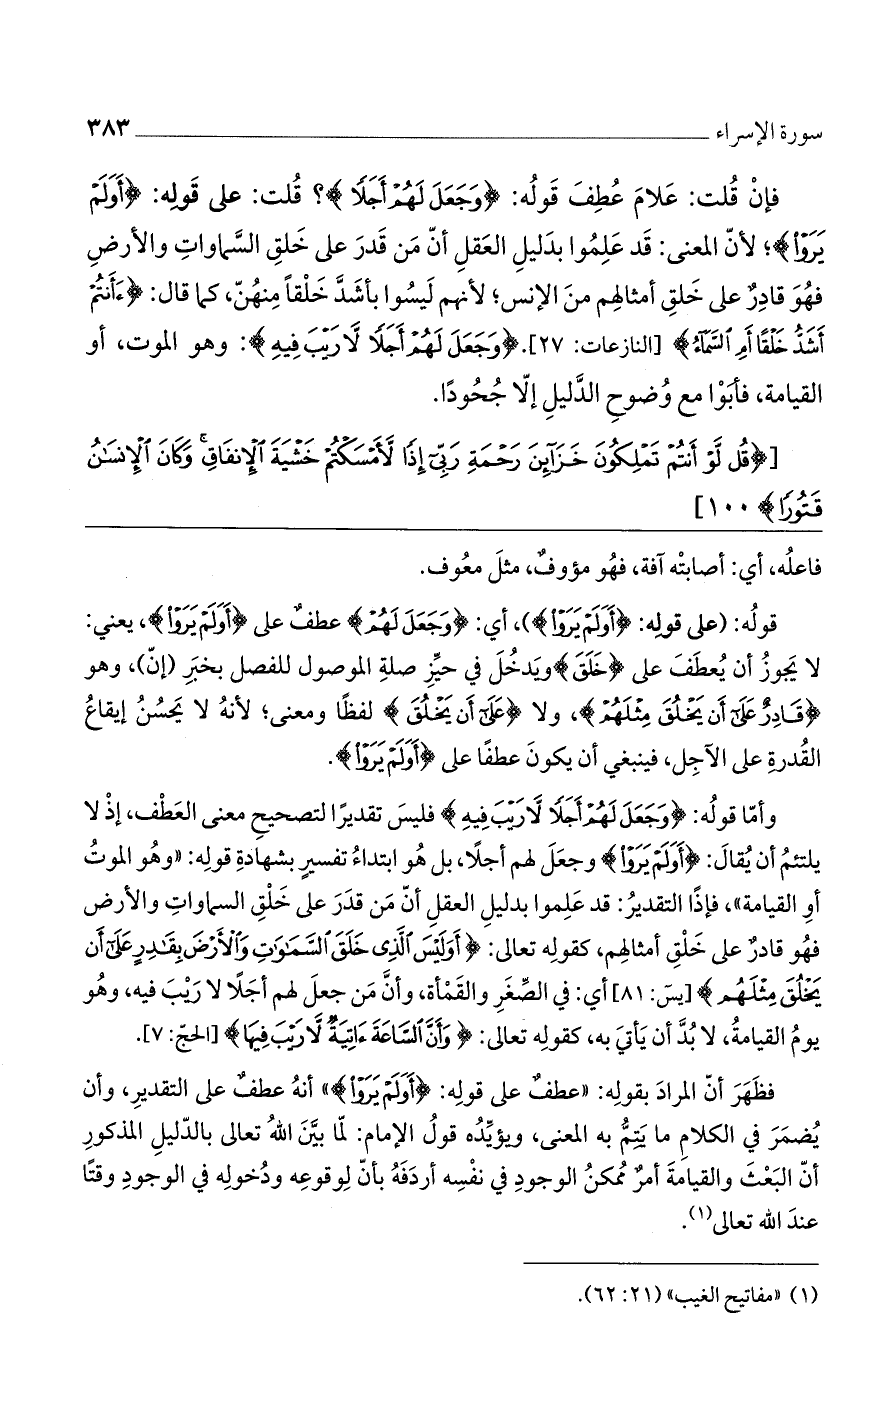 سورة الإسراء ٣٨٣
فإنْ قُلت: عَلامَ عُطِفَ قَولُه: ﴿وَجَعَلَ لَهُمْ أَجَلًا﴾؟ قُلت: على قَولِه: ﴿أَوَلَمْ
يَرَوْا﴾؛ لأنّ المعنى: قَد عَلِمُوا بدَليلِ العَقلِ أنّ مَن قَدرَ على خَلقِ السَّماواتِ والأرضِ
فهُوَ قادِرٌ على خَلقِ أمثالهِم منَ الإنس؛ لأنهم لَيسُوا بأشَدَّ خَلْقاً منهُنّ، كما قال: ﴿ءَأَنتُمْ
أَشَدُّ خَلْقًا أَمِ ٱلسَّمَآءُ﴾ [النازعات: ٢٧]. ﴿وَجَعَلَ لَهُمْ أَجَلًا لَّا رَيْبَ فِيهِ﴾: وهو الموت، أو
القيامة، فأبَوْا مع وُضوحِ الدَّليلِ إلّا جُحُودًا.
[﴿قُل لَّوْ أَنتُمْ تَمْلِكُونَ خَزَآئِنَ رَحْمَةِ رَبِّىٓ إِذًا لَّأَمْسَكْتُمْ خَشْيَةَ ٱلْإِنفَاقِ ۚ وَكَانَ ٱلْإِنسَٰنُ
قَتُورًا﴾ ١٠٠]
فاعلُه، أي: أصابتْه آفة، فهُو مؤوفٌ، مثلَ معُوف.
قولُه: (على قولِه: ﴿أَوَلَمْ يَرَوْا﴾)، أي: ﴿وَجَعَلَ لَهُمْ﴾ عطفٌ على ﴿أَوَلَمْ يَرَوْا﴾، يعني:
لا يَجوزُ أن يُعطَفَ على ﴿خَلَقَ﴾ ويَدخُلَ في حيِّزِ صلةِ الموصول للفصل بخبَرِ (إنّ)، وهو
﴿قَادِرٌ عَلَىٰٓ أَن يَخْلُقَ مِثْلَهُمْ﴾، ولا ﴿عَلَىٰٓ أَن يَخْلُقَ﴾ لفظًا ومعنى؛ لأنهُ لا يَحسُنُ إيقاعُ
القُدرةِ على الآجِل، فينبغي أن يكونَ عطفًا على ﴿أَوَلَمْ يَرَوْا﴾.
وأمّا قولُه: ﴿وَجَعَلَ لَهُمْ أَجَلًا لَّا رَيْبَ فِيهِ﴾ فليسَ تقديرًا لتصحيحِ معنى العَطْف، إذْ لا
يلتئمُ أن يُقالَ: ﴿أَوَلَمْ يَرَوْا﴾ وجعَلَ لهم أجلًا، بل هُو ابتداءُ تفسيرٍ بشهادةِ قولِه: «وهُو الموتُ
أوِ القيامة»، فإذًا التقديرُ: قد عَلِموا بدليلِ العقلِ أنّ مَن قدَرَ على خَلْقِ السماواتِ والأرض
فهُو قادرٌ على خَلْقِ أمثالهِم، كقولِه تعالى: ﴿أَوَلَيْسَ ٱلَّذِى خَلَقَ ٱلسَّمَٰوَٰتِ وَٱلْأَرْضَ بِقَٰدِرٍ عَلَىٰٓ أَن
يَخْلُقَ مِثْلَهُم﴾ [يسَ: ٨١] أي: في الصِّغَرِ والقَمْأة، وأنَّ مَن جعلَ لهم أجَلًا لا رَيْبَ فيه، وهُو
يومُ القيامةُ، لا بُدَّ أن يأتيَ به، كقولِه تعالى: ﴿وَأَنَّ ٱلسَّاعَةَ ءَاتِيَةٌ لَّا رَيْبَ فِيهَا﴾ [الحجّ: ٧].
فظَهَرَ أنّ المرادَ بقولِه: «عطفٌ على قولِه: ﴿أَوَلَمْ يَرَوْا﴾» أنهُ عطفٌ على التقدير، وأن
يُضمَرَ في الكلامِ ما يَتِمُّ به المعنى، ويؤيِّدُه قولُ الإمام: لمّا بيَّنَ اللهُ تعالى بالدَّليلِ المذكورِ
أنّ البَعْثَ والقيامةَ أمرٌ مُمكنُ الوجودِ في نفْسِه أردَفَهُ بأنّ لِوقوعِه ودُخولِه في الوجودِ وقتًا
عندَ الله تعالى(١).
(١) «مفاتيح الغيب» (٢١: ٦٢).